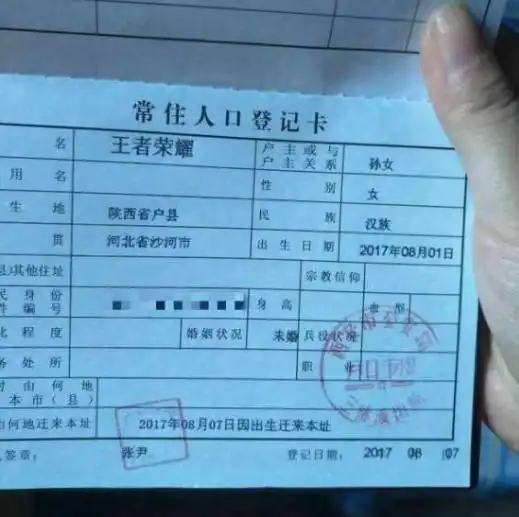 常住人口登记卡
名 王者荣耀 户主或与户主关系 孙女
用名 性别 女
生地 陕西省户县 民族 汉族
贯 河北省沙河市 出生日期 2017年08月01日
县)其他住址 宗教信仰
民身份件编号 身高 血型
化程度 婚姻状况 未婚 兵役状况
务处所 职业
由何地本市(县)
何地迁来本址 2017年08月07日因出生迁来本址
人签章: 张尹 登记日期: 2017 08 07